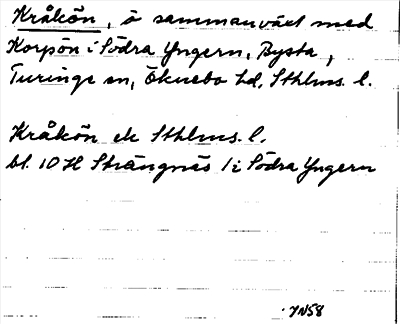 Kråkön, ö sammanväxt med
Korpön i Södra Yngern, Bysta,
Turinge sn, Öknebo hd, Sthlms. l.
Kråkön ek Sthlms. l.
bl. 10 H Strängnäs / i Södra Yngern
YN58